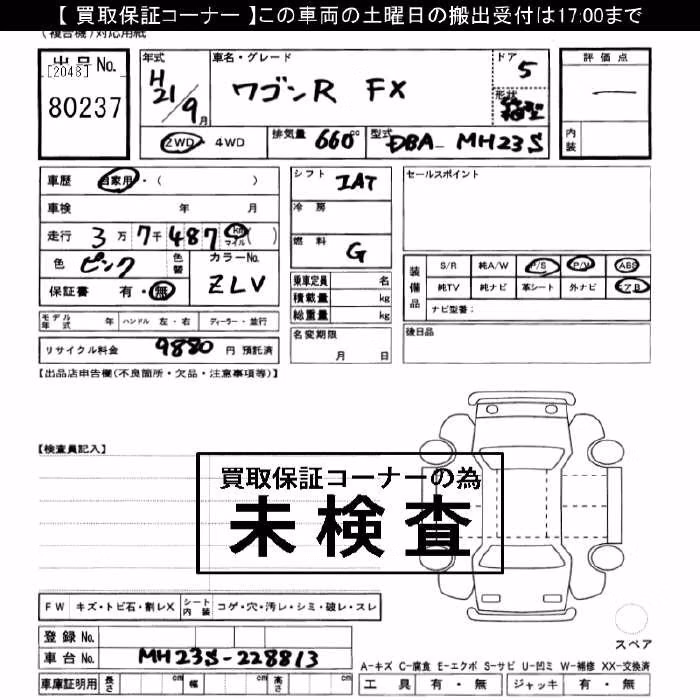 【 買取保証コーナー 】この車両の土曜日の搬出受付は17:00まで
(複合機)対応用紙
出品No.
[2048]
80237
年式
H21/9月
車名・グレード
ワゴンR FX
ドア
5
形状
評価点
内装
2WD・4WD
排気量 660cc
型式 DBA-MH23S
車歴 自家用・( )
車検 年 月
走行 3万7千487km マイル( )
色 ピンク
色替
カラーNo.
ZLV
保証書 有・無
シフト IAT
冷房
燃料 G
乗車定員 名
積載量 kg
総重量 kg
セールスポイント
装備品
S/R 純A/W P/S P/W ABS
純TV 純ナビ 革シート 外ナビ エアB
ナビ型番:
モデル年式 年 ハンドル 左・右 ディーラー・並行
名変期限
月 日
後日品
リサイクル料金 9880 円 預託済
【出品店申告欄(不良箇所・欠品・注意事項等)】
【検査員記入】
買取保証コーナーの為
未検査
FW キズ・トビ石・割レX
シート内装 コゲ・穴・汚レ・シミ・破レ・スレ
登録No.
車台No. MH23S-228813
車庫証明用 長さ cm 幅 cm 高さ cm
スペア
A-キズ C-腐食 E-エクボ S-サビ U-凹ミ W-補修 XX-交換済
工具 有・無 ジャッキ 有・無